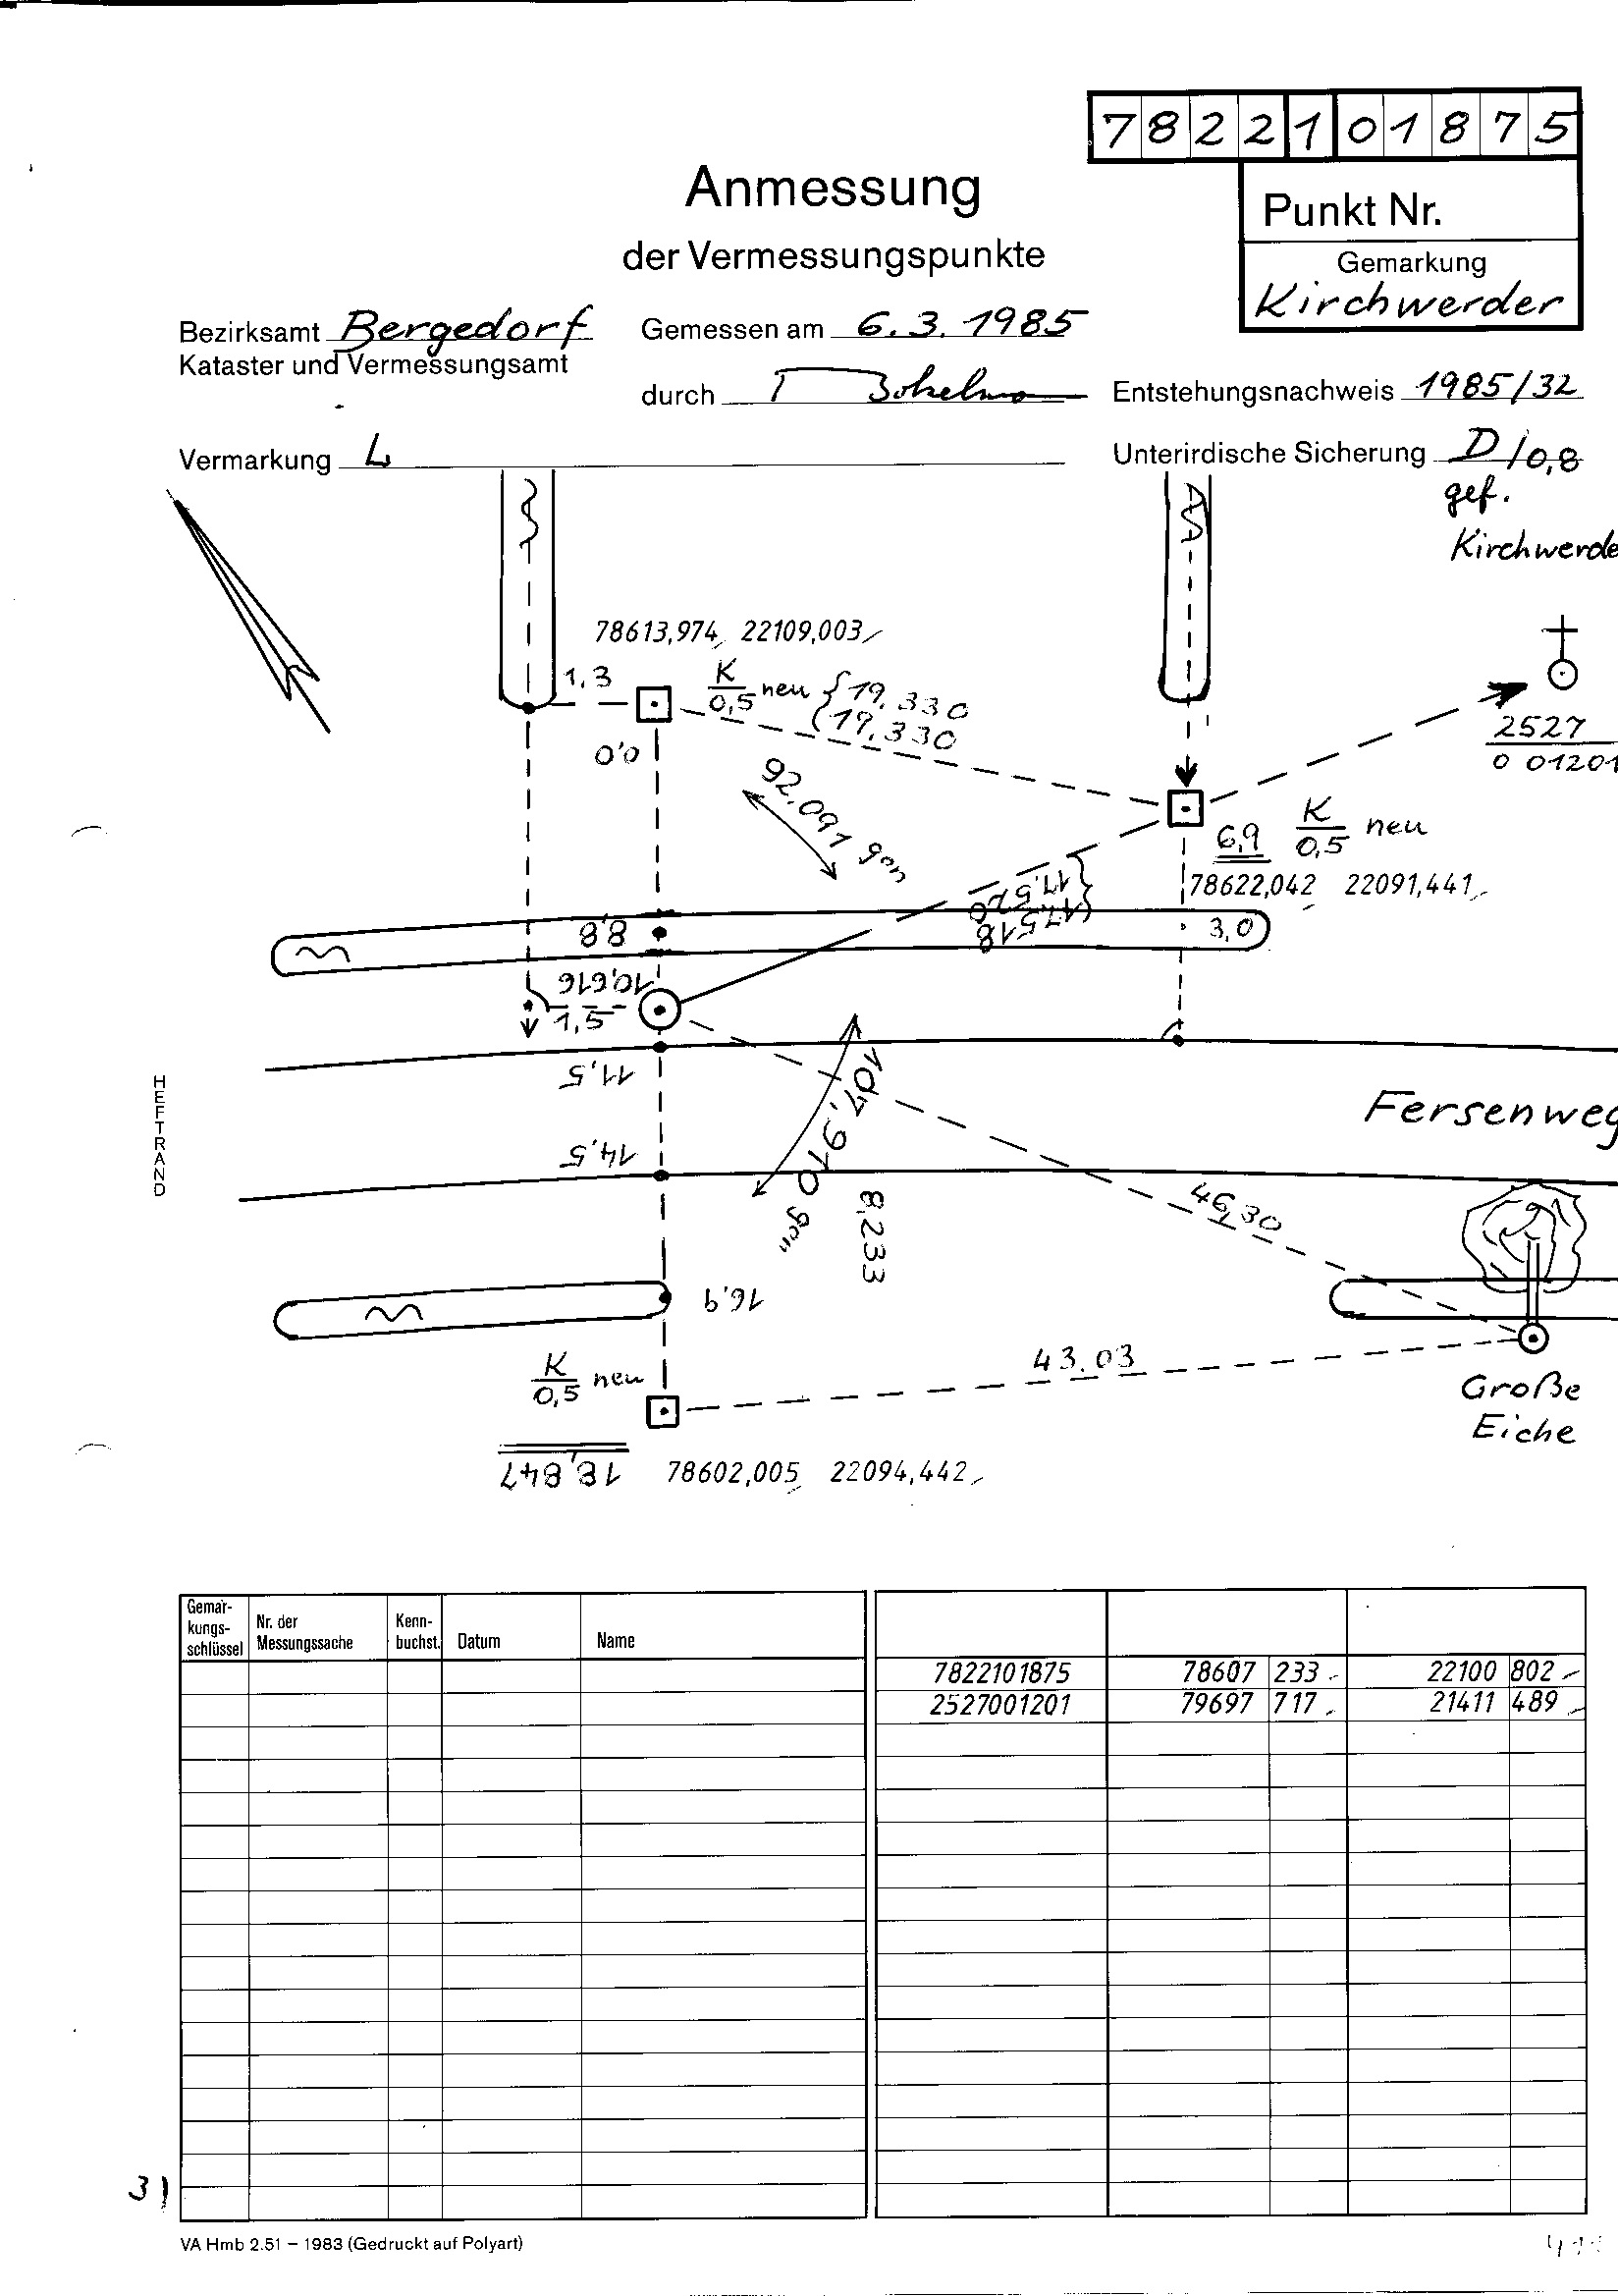 7822101875
Anmessung
der Vermessungspunkte
Punkt Nr.
Gemarkung
Kirchwerder
Bezirksamt Bergedorf
Kataster und Vermessungsamt
Gemessen am 6.3.1985
durch
Entstehungsnachweis 1985/32
Vermarkung L
Unterirdische Sicherung D/0,8
gef.
Kirchwerde
78613,974 22109,003
1,3
K
0,5 neu
19,330
19,330
0,0
2527
0 01201
92,091 gon
6,9
K
0,5 neu
78622,042 22091,441
17,520
17,518
8,8
3,0
10,616
1,5
11,5
HEFTRAND
107,910 gon
Fersenweg
14,5
8,233
46,30
16,9
43,03
K
0,5 neu
Große
Eiche
18,847
78602,005 22094,442
Gemar-
kungs-
schlüssel
Nr. der
Messungssache
Kenn-
buchst.
Datum
Name
7822101875 78607 233 22100 802
2527001201 79697 717 21411 489
31
VA Hmb 2.51 – 1983 (Gedruckt auf Polyart)